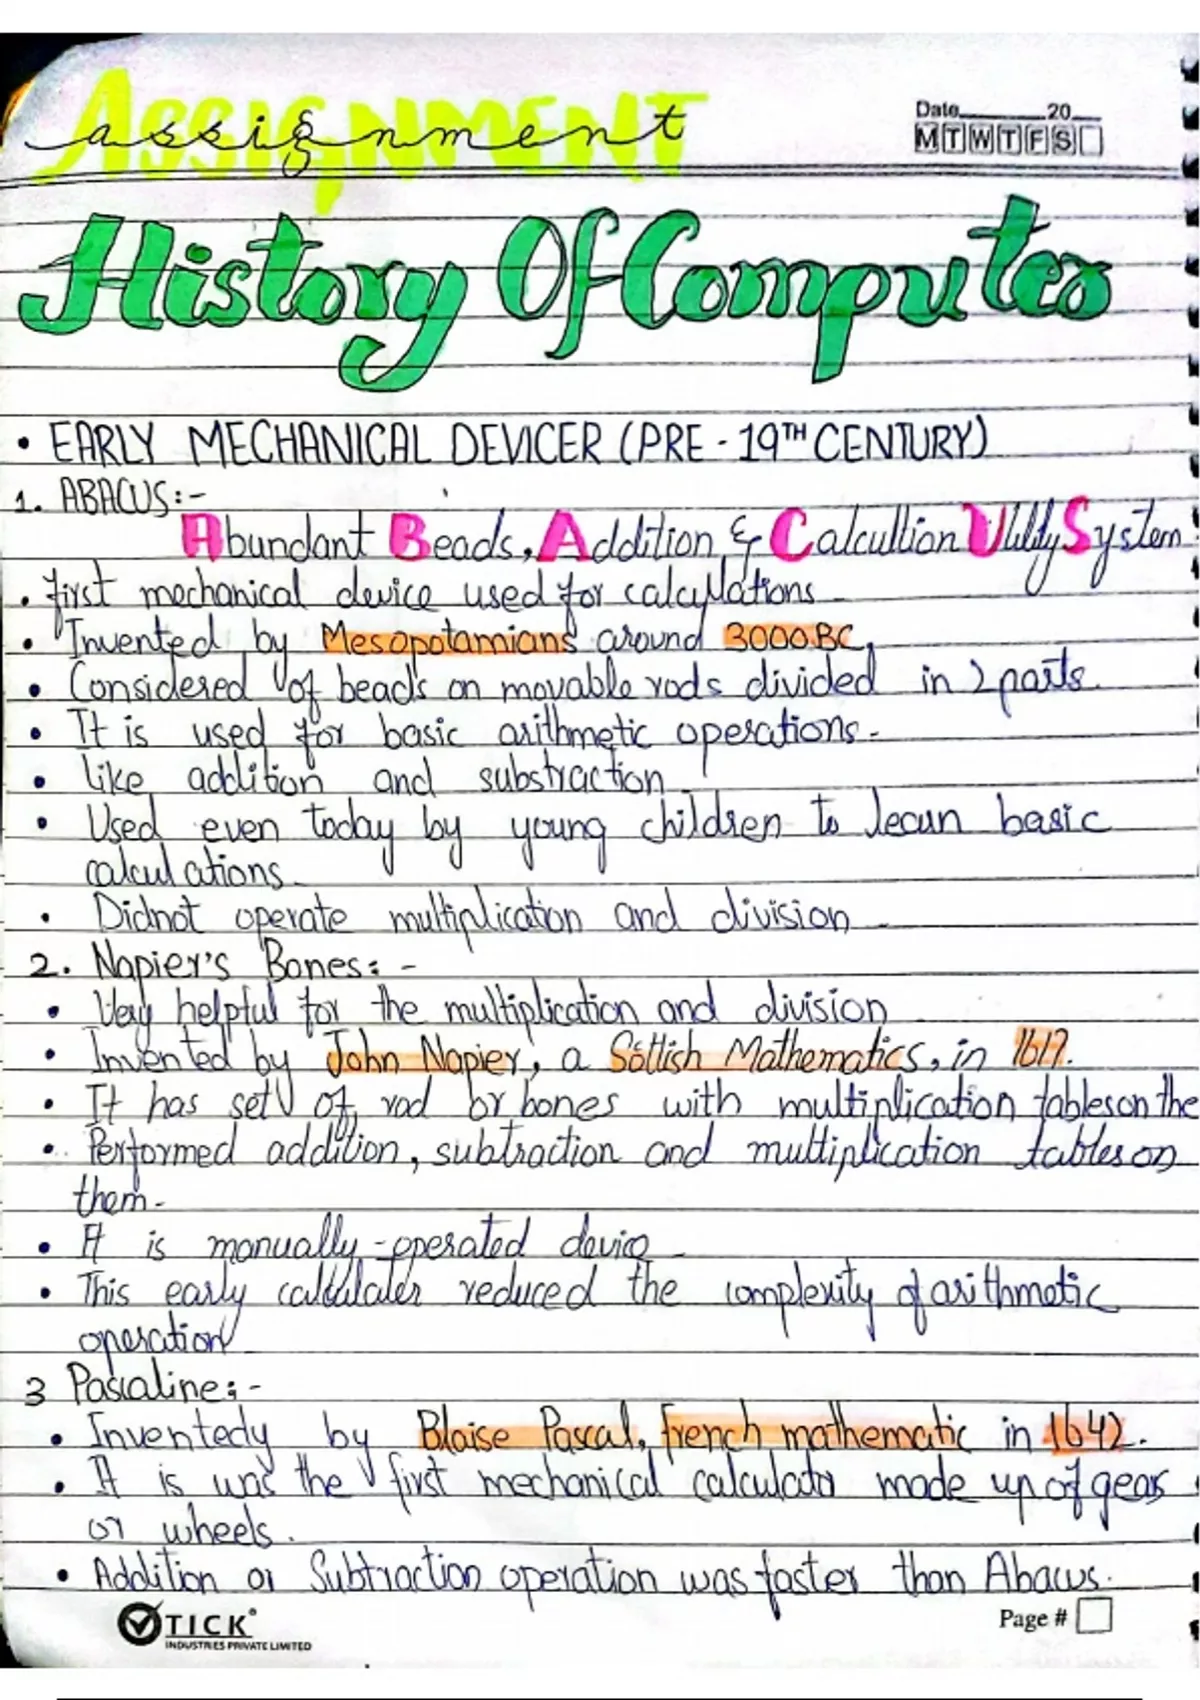 ASSIGNMENT
assignment
Date 20
M T W T F S
History Of Computer
• EARLY MECHANICAL DEVICER (PRE - 19TH CENTURY)
1. ABACUS:-
Abundant Beads, Addition & Calcultion Utility System
• first mechanical device used for calculations
• Invented by Mesopotamians around 3000.BC,
• Considered of beads on movable rods divided in 2 parts.
• It is used for basic arithmetic operations.
• Like addition and substraction
• Used even today by young children to learn basic
calculations.
• Didnot operate multiplication and division
2. Napier's Bones: -
• Very helpful for the multiplication and division
• Invented by John Napier, a Scottish Mathematics, in 1617.
• It has set of rod or bones with multiplication tables on the
• Performed addition, subtraction and multiplication tables on
them.
• It is manually-operated device
• This early calculater reduced the complexity of arithmetic
operation
3 Pascaline: -
• Inventedy by Blaise Pascal, french mathematic in 1642.
• It is was the first mechanical calculator made up of gears
or wheels.
• Addition or Subtraction operation was faster than Abacus.
TICK®
INDUSTRIES PRIVATE LIMITED
Page #